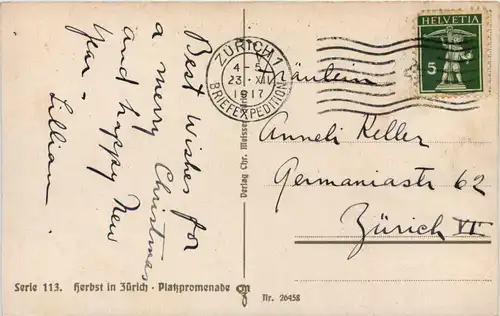 Best wishes for
a merry Christmas
and happy New
Year -
Lillian
ZÜRICH 1
23. XII
1917
BRIEFEXPEDITION
HELVETIA
5
Fräulein
Anneli Keller
Germaniastr 62
Zürich VI
Serie 113. Herbst in Zürich · Platzpromenade
Nr. 26458